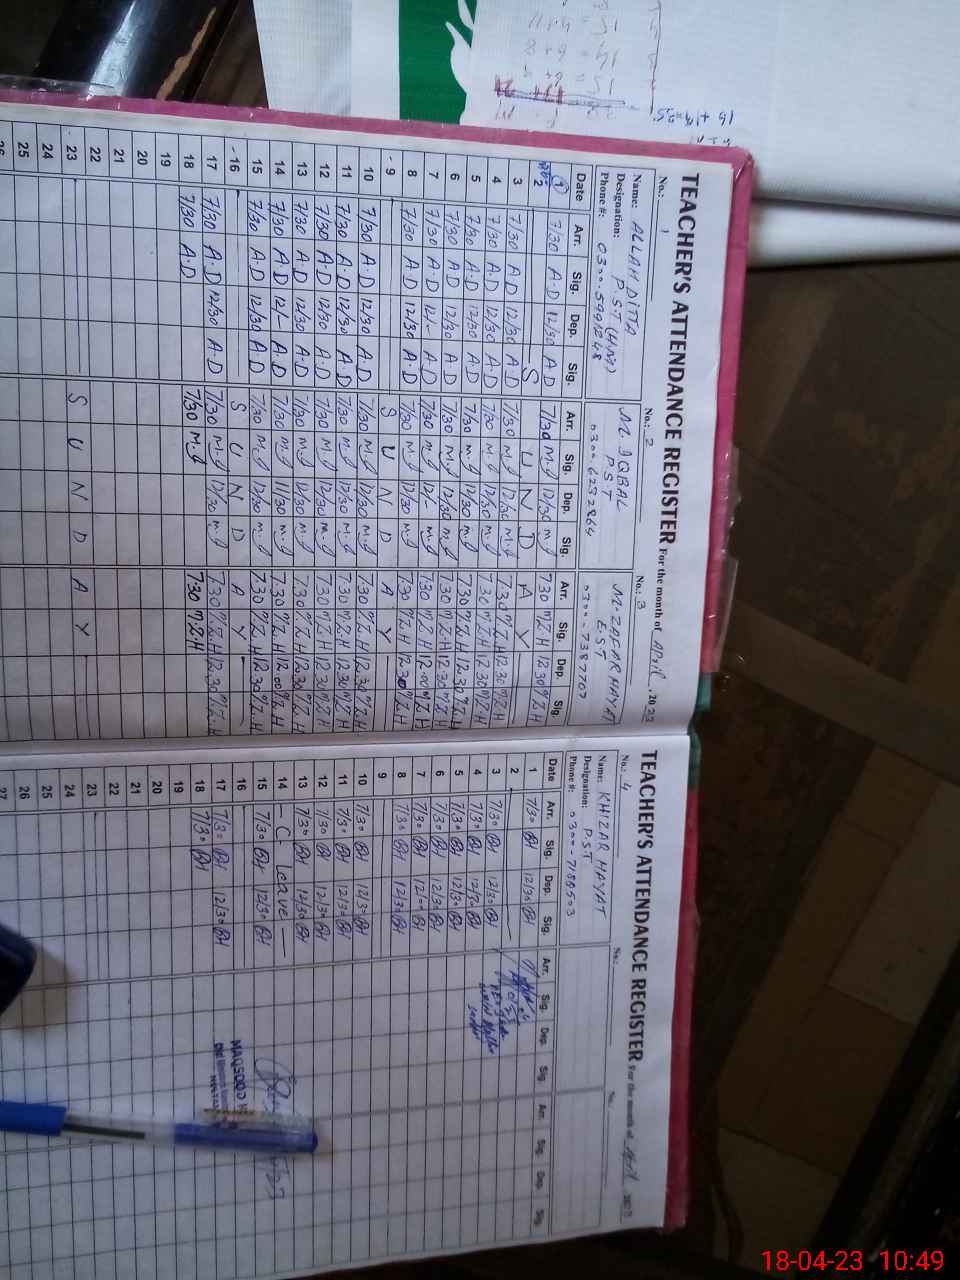 TEACHER'S ATTENDANCE REGISTER For the month of April, 2023
No.: 1
Name: ALLAH DITTA
Designation: P.ST (H.M)
Phone #: 0300-5991248
No.: 2
M. IQBAL
PST
0300-6232864
No.: 3
M. ZAFAR HAYAT
EST
Date Arr. Sig. Dep. Sig. Arr. Sig. Dep. Sig. Arr. Sig. Dep. Sig.
1 7/30 A.D 12/30 A.D 7/30 M.I 12/30 M.I 7 30 MZH 12 30 MZH
2 S U N D A Y
3 7/30 A.D 12/30 A.D 7/30 M.I 12/30 M.I 7 30 MZH 12 30 MZH
4 7/30 A.D 12/30 A.D 7/30 M.I 12/30 M.I 7 30 MZH 12 30 MZH
5 7/30 A.D 12/30 A.D 7/30 M.I 12/30 M.I 7 30 MZH 12 30 MZH
6 7/30 A.D 12/30 A.D 7/30 M.I 12/30 M.I 7 30 MZH 12 30 MZH
7 7/30 A.D 12/- A.D 7/30 M.I 12/- M.I 7 30 MZH 12 00 MZH
8 7/30 A.D 12/30 A.D 7/30 M.I 12/30 M.I 7 30 MZH 12 30 MZH
9 S U N D A Y
10 7/30 A.D 12/30 A.D 7/30 M.I 12/30 M.I 7 30 MZH 12 30 MZH
11 7/30 A.D 12/30 A.D 7/30 M.I 12/30 M.I 7 30 MZH 12 30 MZH
12 7/30 A.D 12/30 A.D 7/30 M.I 12/30 M.I 7 30 MZH 12 30 MZH
13 7/30 A.D 12/30 A.D 7/30 M.I 12/30 M.I 7 30 MZH 12 30 MZH
14 7/30 A.D 12/- A.D 7/30 M.I M.I 7 30 MZH 12 00 MZH
15 7/30 A.D 12/30 A.D 7/30 M.I 12/30 M.I 7 30 MZH 12 30 MZH
16 S U N D A Y
17 7/30 A.D 12/30 A.D 7/30 M.I 12/30 M.I 7 30 MZH 12 30 MZH
18 7/30 A.D 7/30 M.I 7 30 MZH
19
20
21
22
23 S U N D A Y
24
25
26
TEACHER'S ATTENDANCE REGISTER For the month of April 2023
No.: 4
Name: KHIZAR HAYAT
Designation: PST
Phone #:
No.:
No.:
Date Arr. Sig. Dep. Sig. Arr. Sig. Dep. Sig. Arr. Sig. Dep. Sig.
1 7/30 KH 12/30 KH
2
3 7/30 KH 12/30 KH
4 7/30 KH 12/30 KH
5 7/30 KH 12/30 KH
6 7/30 KH 12/30 KH
7 7/30 KH 12/00 KH
8 7/30 KH 12/30 KH
9
10 7/30 KH 12/30 KH
11 7/30 KH 12/30 KH
12 7/30 KH 12/30 KH
13 7/30 KH 12/30 KH
14 — C. Leave —
15 7/30 KH 12/30 KH
16
17 7/30 KH 12/30 KH
18 7/30 KH
19
20
21
22
23
24
25
26
27
MAQSOOD
18-04-23 10:49